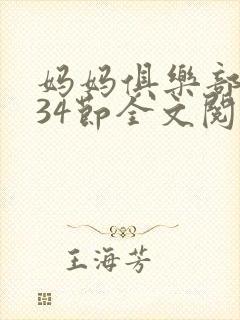 妈妈俱樂部
34節全文閱
王海芳